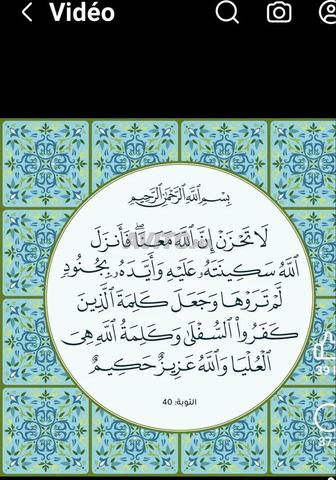 Vidéo
بِسْمِ ٱللَّهِ ٱلرَّحْمَٰنِ ٱلرَّحِيمِ
لَا تَحْزَنْ إِنَّ ٱللَّهَ مَعَنَاۖ فَأَنزَلَ
ٱللَّهُ سَكِينَتَهُۥ عَلَيْهِ وَأَيَّدَهُۥ بِجُنُودٍ
لَّمْ تَرَوْهَا وَجَعَلَ كَلِمَةَ ٱلَّذِينَ
كَفَرُوا۟ ٱلسُّفْلَىٰۗ وَكَلِمَةُ ٱللَّهِ هِىَ
ٱلْعُلْيَاۗ وَٱللَّهُ عَزِيزٌ حَكِيمٌ
التوبة: 40